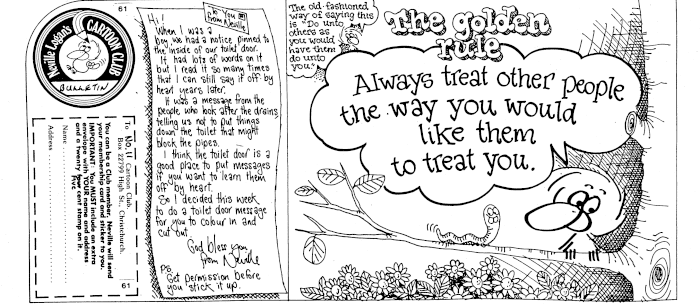 61
Neville Logan's
CARTOON CLUB
BULLETIN
To No. 11 Cartoon Club
Box 22799 High St., Christchurch
You can be a Club member, Neville will send
your membership card and sticker to you.
IMPORTANT: You MUST include an extra
envelope with YOUR name and address
and a twenty five cent stamp on it.
Name
Address
61
To You
from Neville
Hi!
When I was a
boy we had a notice pinned to
the inside of our toilet door.
It had lots of words on it
but I read it so many times
that I can still say it off by
heart years later.
It was a message from the
people who look after the drains
telling us not to put things
down the toilet that might
block the pipes.
I think the toilet door is a
good place to put messages
if you want to learn them
off by heart.
So I decided this week
to do a toilet door message
for you to colour in and
cut out.
God bless you
from Neville
PS.
Get permission before
you stick it up.
The old-fashioned
way of saying this
is "Do unto
others as
you would
have them
do unto
you."
The golden
rule
Always treat other people
the way you would
like them
to treat you.